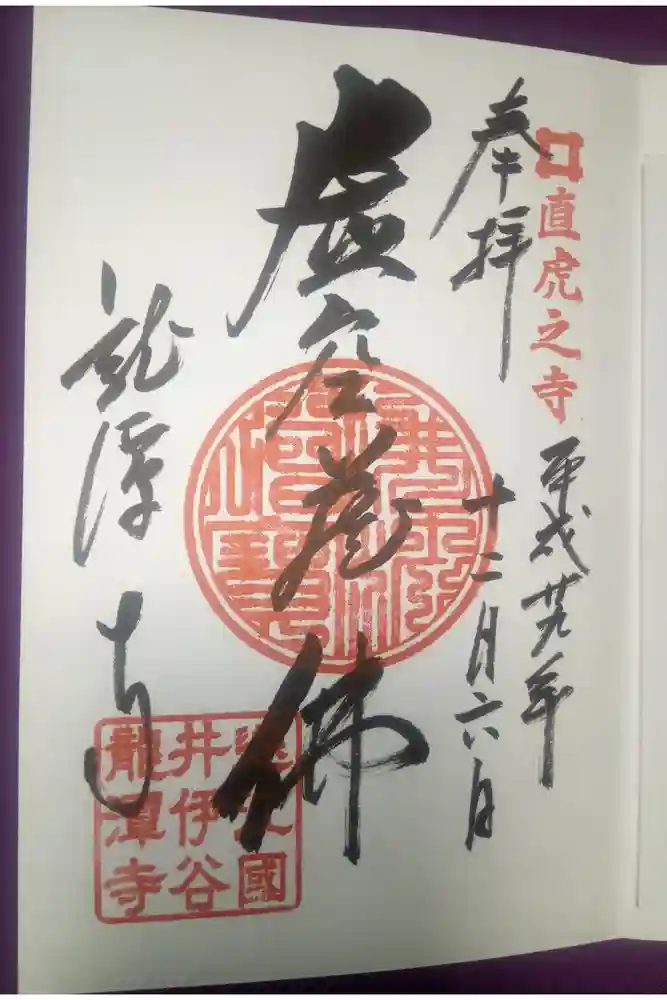 直虎之寺
平成廿九年
奉拝
十二月六日
虚空蔵佛
龍潭寺
遠江國
井伊谷
龍潭寺